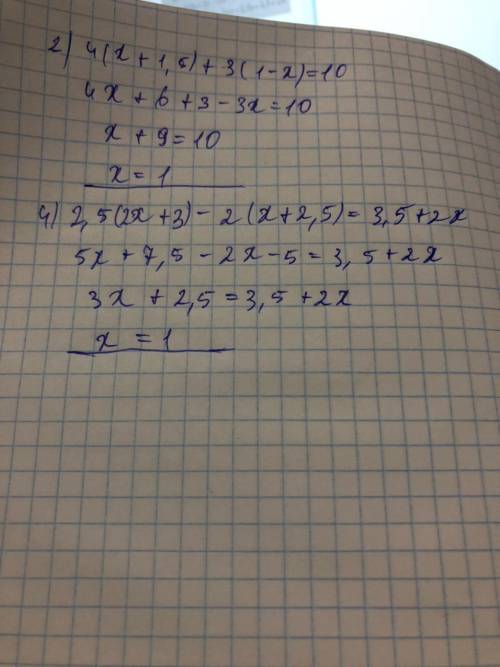 2) 4(x+1,5)+3(1-x)=10
4x+6+3-3x=10
x+9=10
x=1
4) 2,5(2x+3)-2(x+2,5)=3,5+2x
5x+7,5-2x-5=3,5+2x
3x+2,5=3,5+2x
x=1